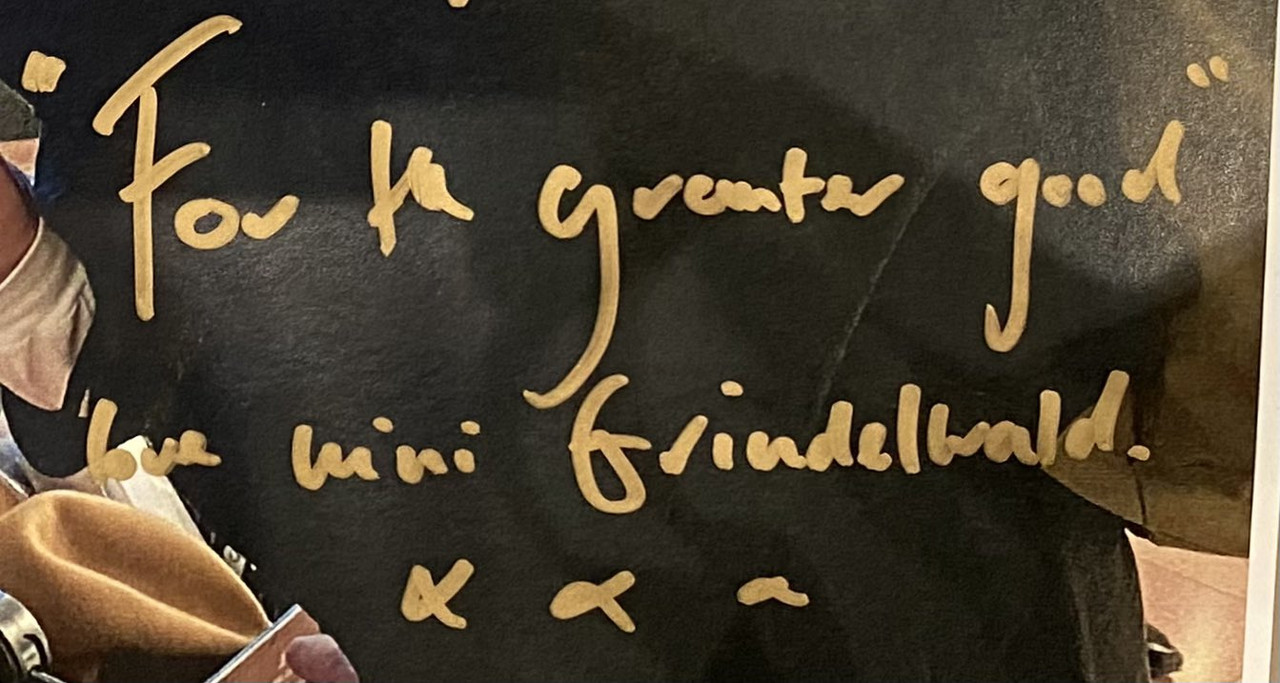 "For the greater good"
love mini Grindelwald.
x x x